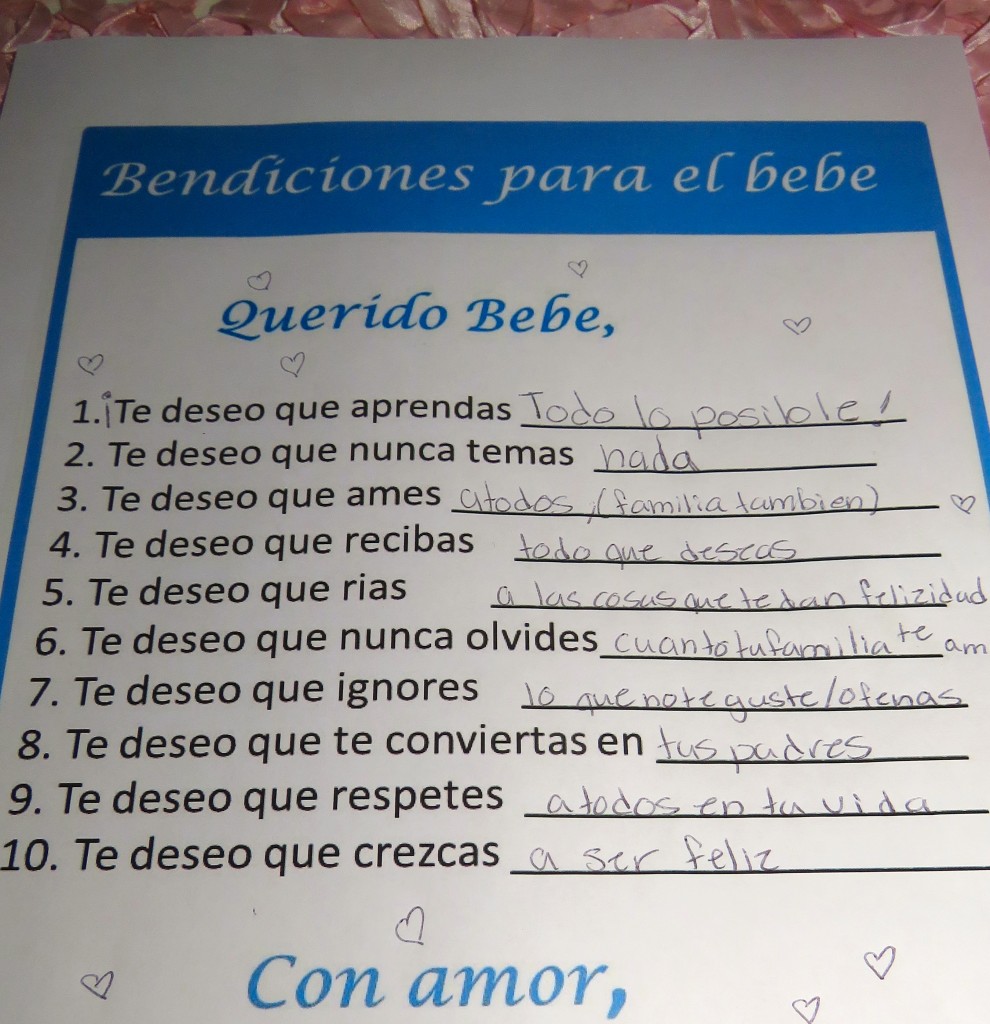 Bendiciones para el bebe
Querido Bebe,
1. ¡Te deseo que aprendas Todo lo posible!
2. Te deseo que nunca temas nada
3. Te deseo que ames a todos, (familia tambien)
4. Te deseo que recibas todo que deseas
5. Te deseo que rias a las cosas que te dan felizidad
6. Te deseo que nunca olvides cuanto tu familia te am
7. Te deseo que ignores lo que no te guste/ofenas
8. Te deseo que te conviertas en tus padres
9. Te deseo que respetes a todos en tu vida
10. Te deseo que crezcas a ser feliz
Con amor,